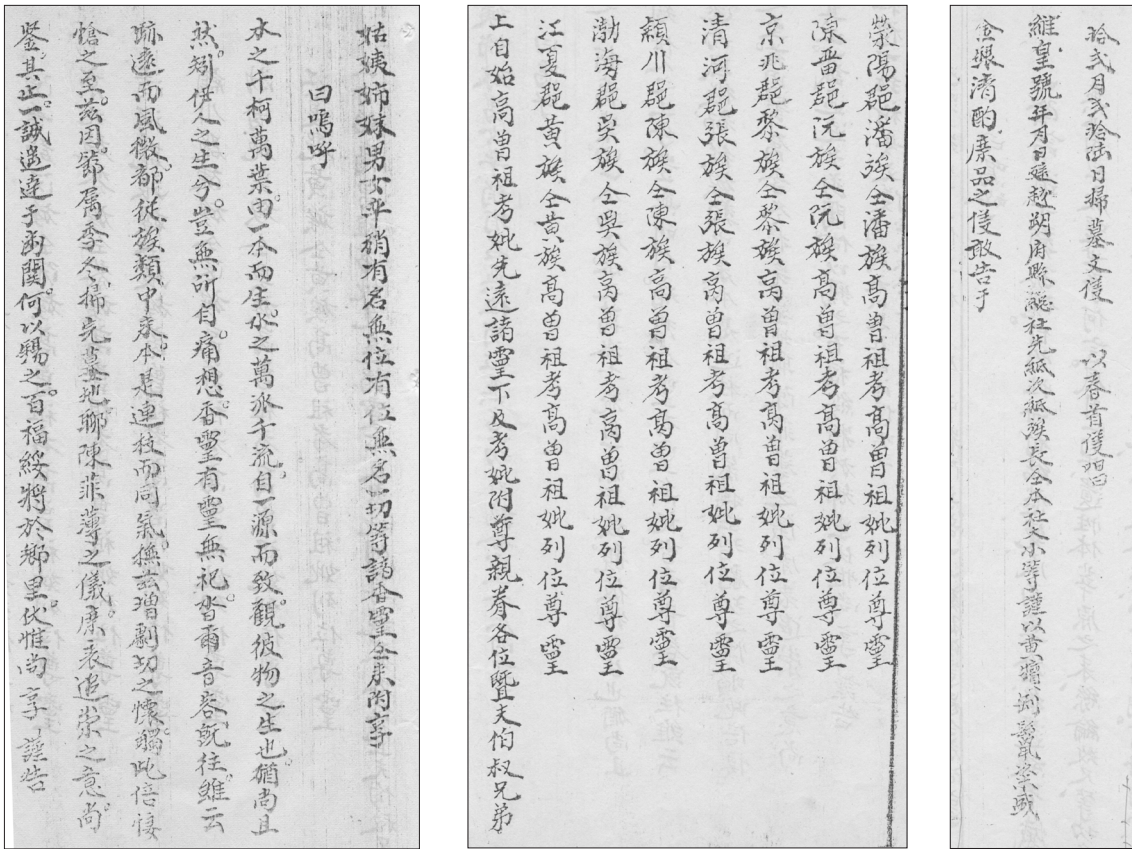 拾弍月弍拾陆日掃墓文俴 以春首俴㗂
維皇號年月日建起朔府縣總社先紙次紙族長仝本社大小等謹以黄犢剛鬣粢盛
金銀清酌庶品之俴敢告于
滎陽郡潘族仝潘族高曾祖考高曾祖妣列位尊靈
陳晋郡阮族仝阮族高曾祖考高曾祖妣列位尊靈
京兆郡黎族仝黎族高曾祖考高曾祖妣列位尊靈
清河郡張族仝張族高曾祖考高曾祖妣列位尊靈
穎川郡陳族仝陳族高曾祖考高曾祖妣列位尊靈
渤海郡吳族仝吳族高曾祖考高曾祖妣列位尊靈
江夏郡黄族仝黄族高曾祖考高曾祖妣列位尊靈
上自始高曾祖考妣先遠諸靈下及考妣附尊親眷各位暨夫伯叔兄弟
姑姨姉妹男女平稍有名無位有位無名一切等諸香靈仝来附享
曰嗚呼
木之千柯萬葉由一本而生水之萬派千流自一源而致觀彼物之生也猶尚且
然矧伊人之生兮豈無所自痛想香靈有靈無祀沓爾音容既往雖云
疏遠而風微部從族類中来本是連枝而同氣撫兹增劇切之懷觸此倍悽
愴之至兹因節属季冬掃完墓地聊陳菲薄之儀庶表追崇之意尚
鑒其止一誠遥達于幽關何以賜之百福綏將於鄉里伏惟尚享 謹告